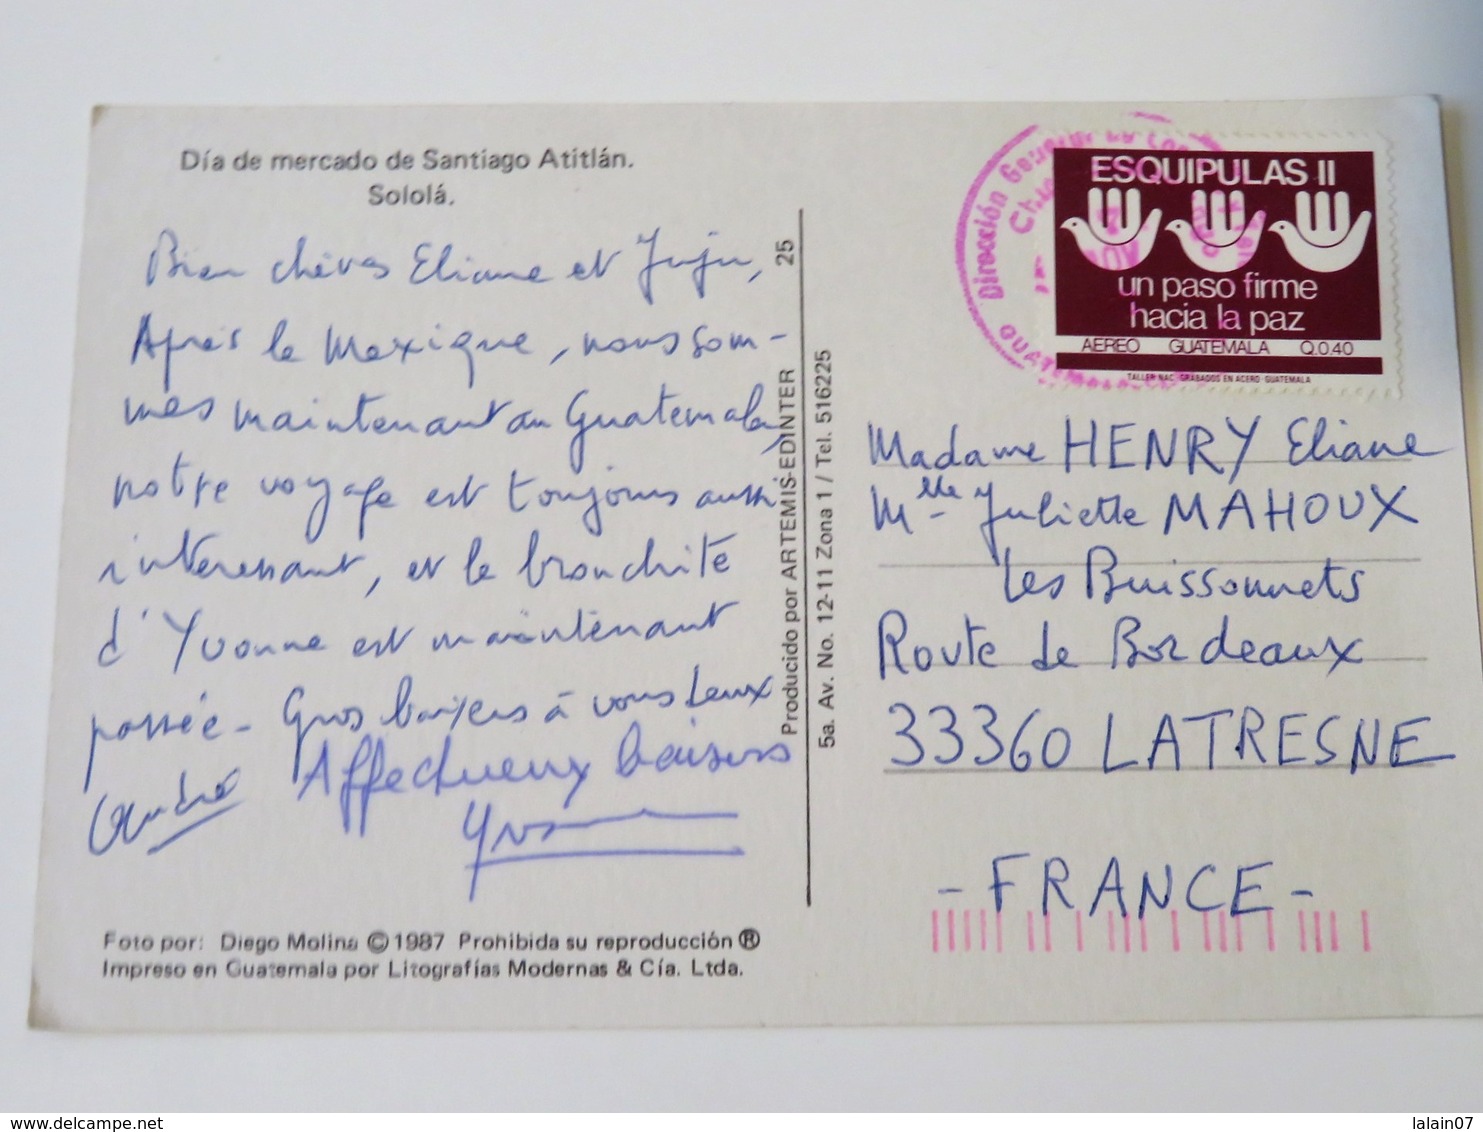 Día de mercado de Santiago Atitlán.
Sololá.
Bien chères Eliane et Juju,
Après le Mexique, nous som-
mes maintenant au Guatemala,
notre voyage est toujours aussi
intéressant, et la bronchite
d'Yvonne est maintenant
passée - Gros baisers à vous deux
André
Affectueux baisers
Yvonne
Foto por: Diego Molina © 1987 Prohibida su reproducción ®
Impreso en Guatemala por Litografías Modernas & Cía. Ltda.
25
Producido por ARTEMIS-EDINTER
5a. Av. No. 12-11 Zona 1 / Tel. 516225
Dirección General de
GUATEMALA
ESQUIPULAS II
un paso firme
hacia la paz
AEREO GUATEMALA Q.0.40
TALLER NAC. GRABADOS EN ACERO-GUATEMALA
Madame HENRY Eliane
Mlle Juliette MAHOUX
Les Buissonnets
Route de Bordeaux
33360 LATRESNE
- FRANCE -
www.delcampe.net
lalain07